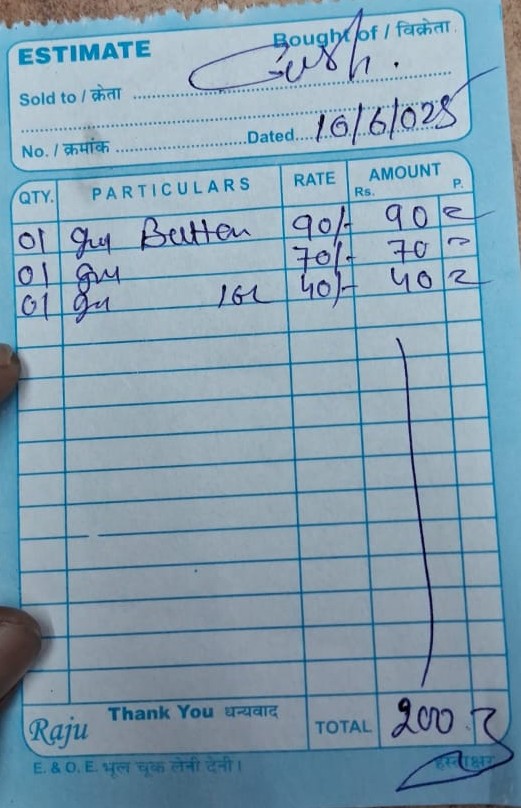 ESTIMATE
Bought of / विक्रेता
Cash.
Sold to / क्रेता
No. / क्रमांक Dated 16/6/025
QTY. PARTICULARS RATE AMOUNT
Rs. P.
01 Button 90/- 90
01 70/- 70
01 40/- 40
Thank You धन्यवाद
Raju TOTAL 200
E. & O. E. भूल चूक लेनी देनी। हस्ताक्षर